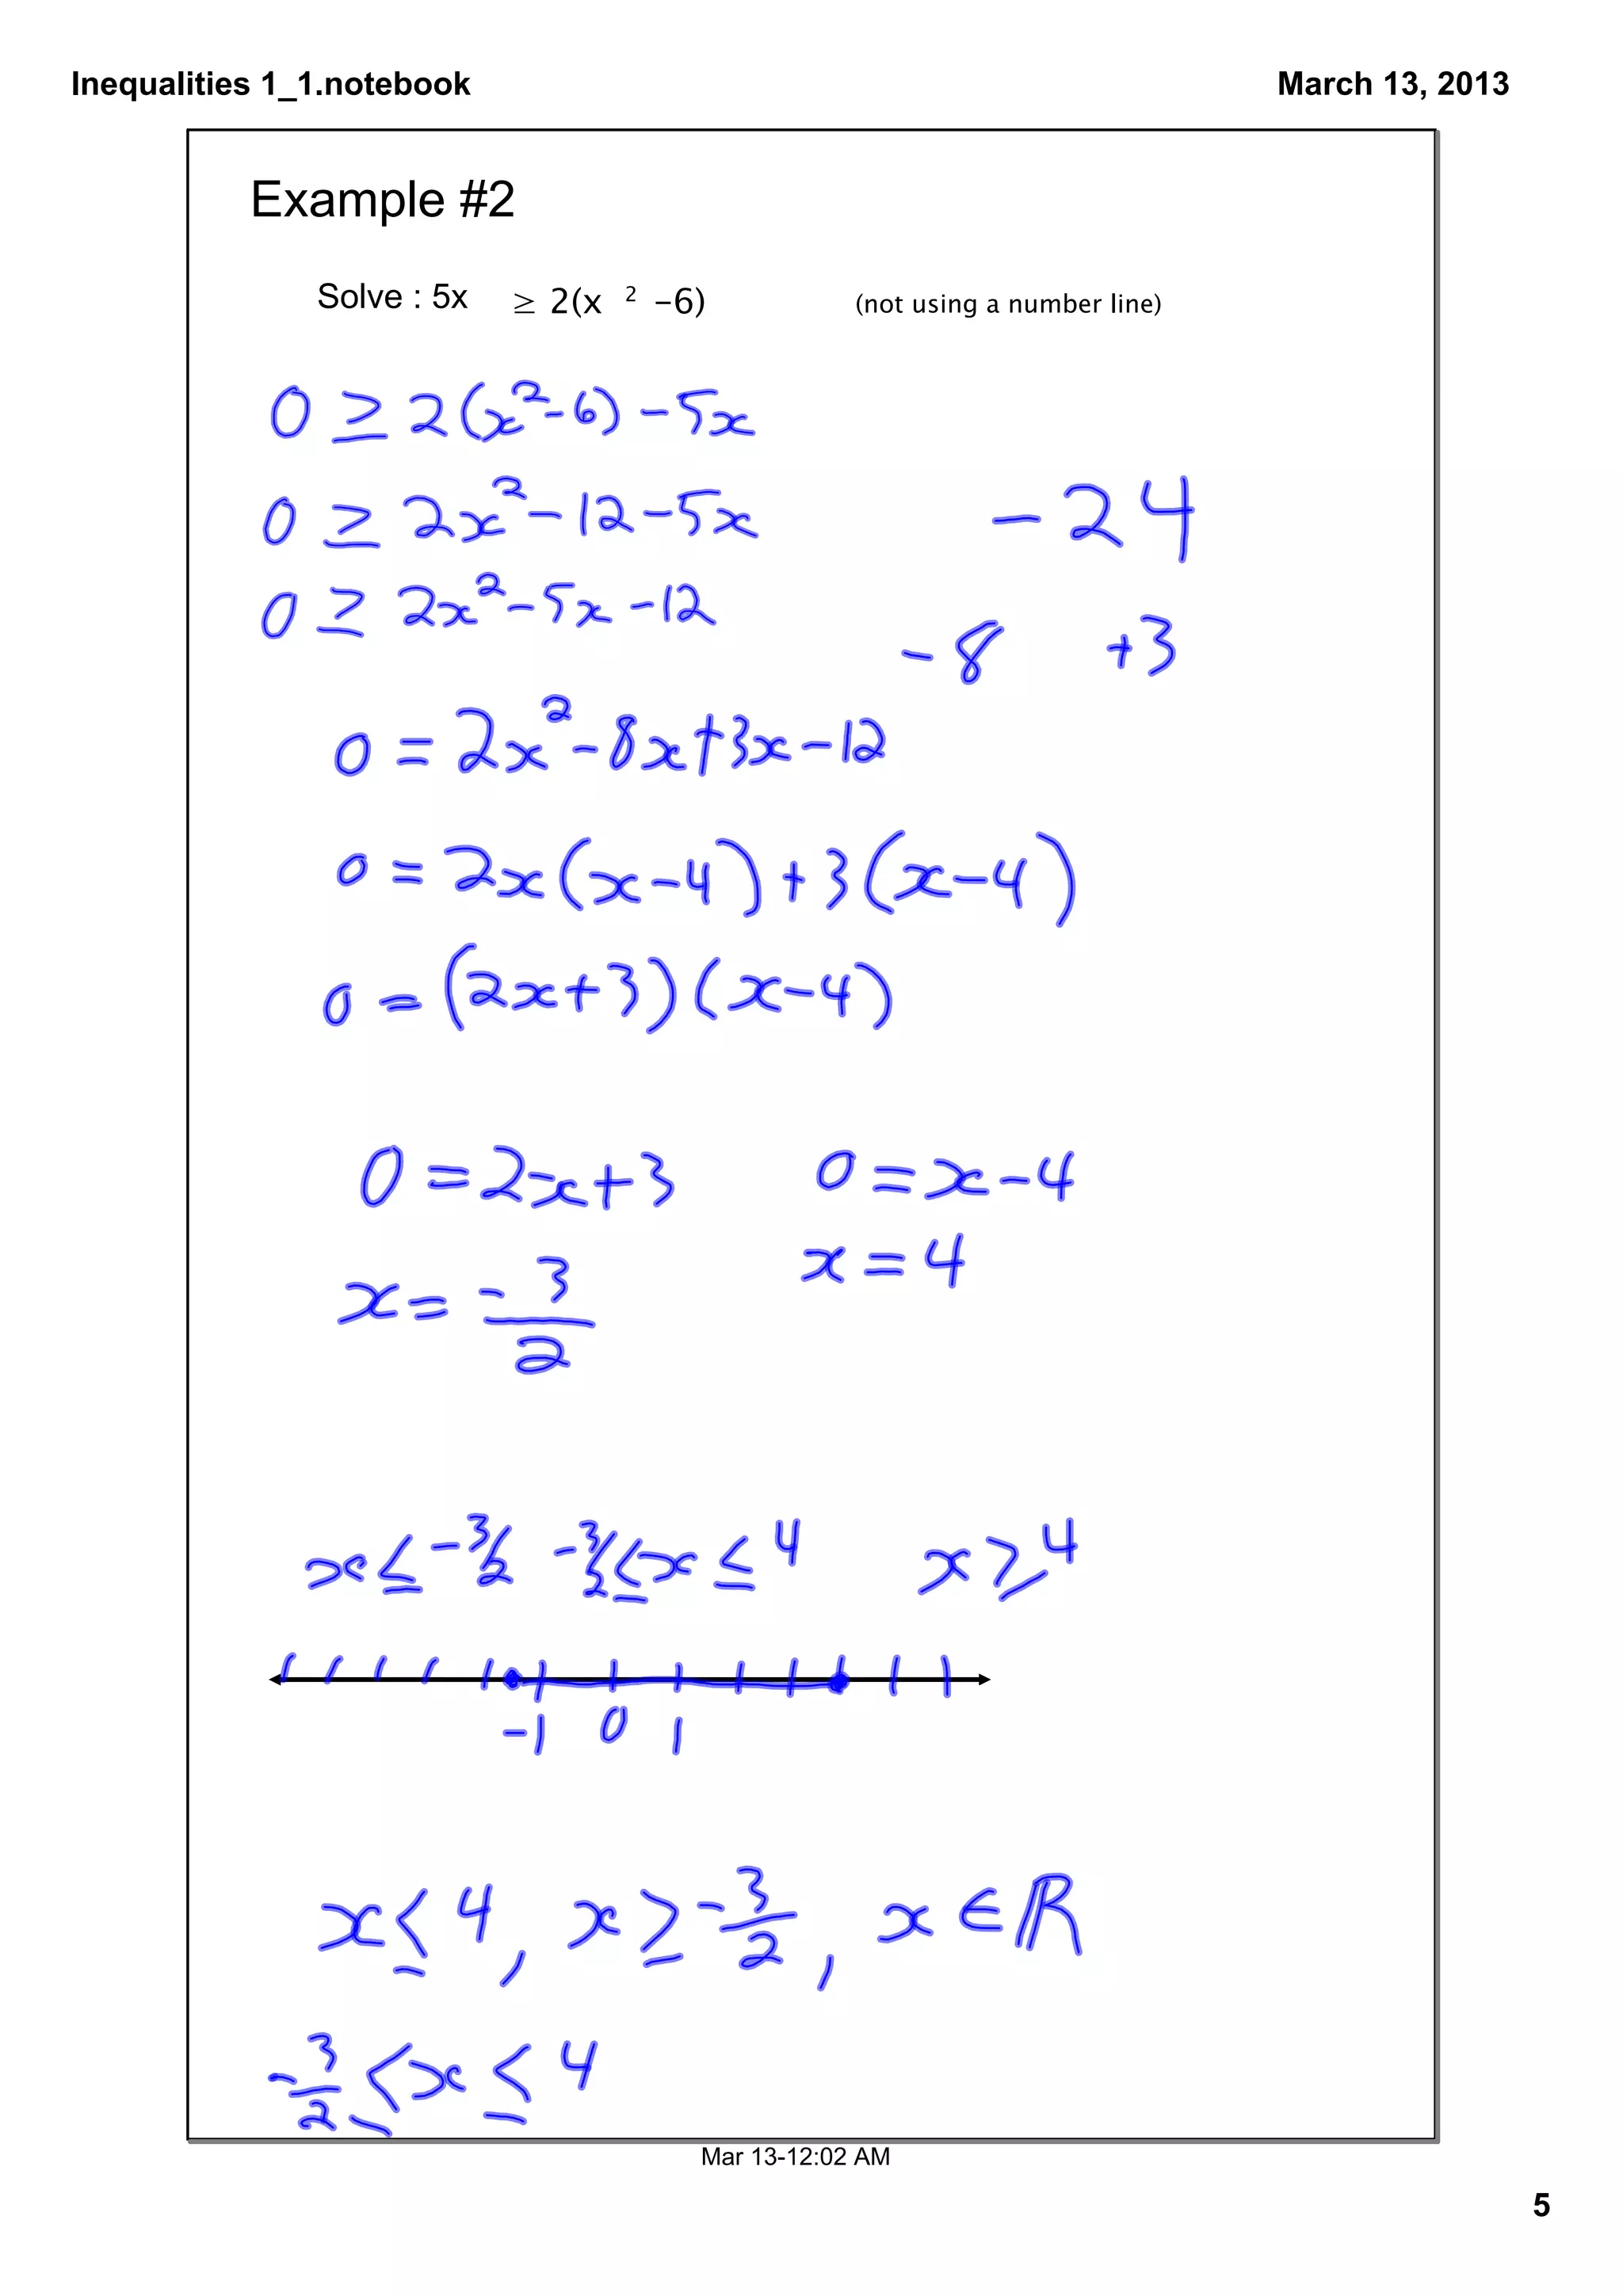 Inequalities 1_1.notebook March 13, 2013
Example #2
Solve : 5x ≥ 2(x ² −6) (not using a number line)
0 ≥ 2(x²-6)-5x
0 ≥ 2x²-12-5x
-24
0 ≥ 2x²-5x-12
-8 +3
0 = 2x²-8x+3x-12
0 = 2x(x-4)+3(x-4)
0 = (2x+3)(x-4)
0=2x+3 0=x-4
x = -3/2 x=4
x≤-3/2 -3/2≤x≤4 x≥4
-1 0 1
x≤4, x≥-3/2, x∈ℝ
-3/2≤x≤4
Mar 13-12:02 AM
5